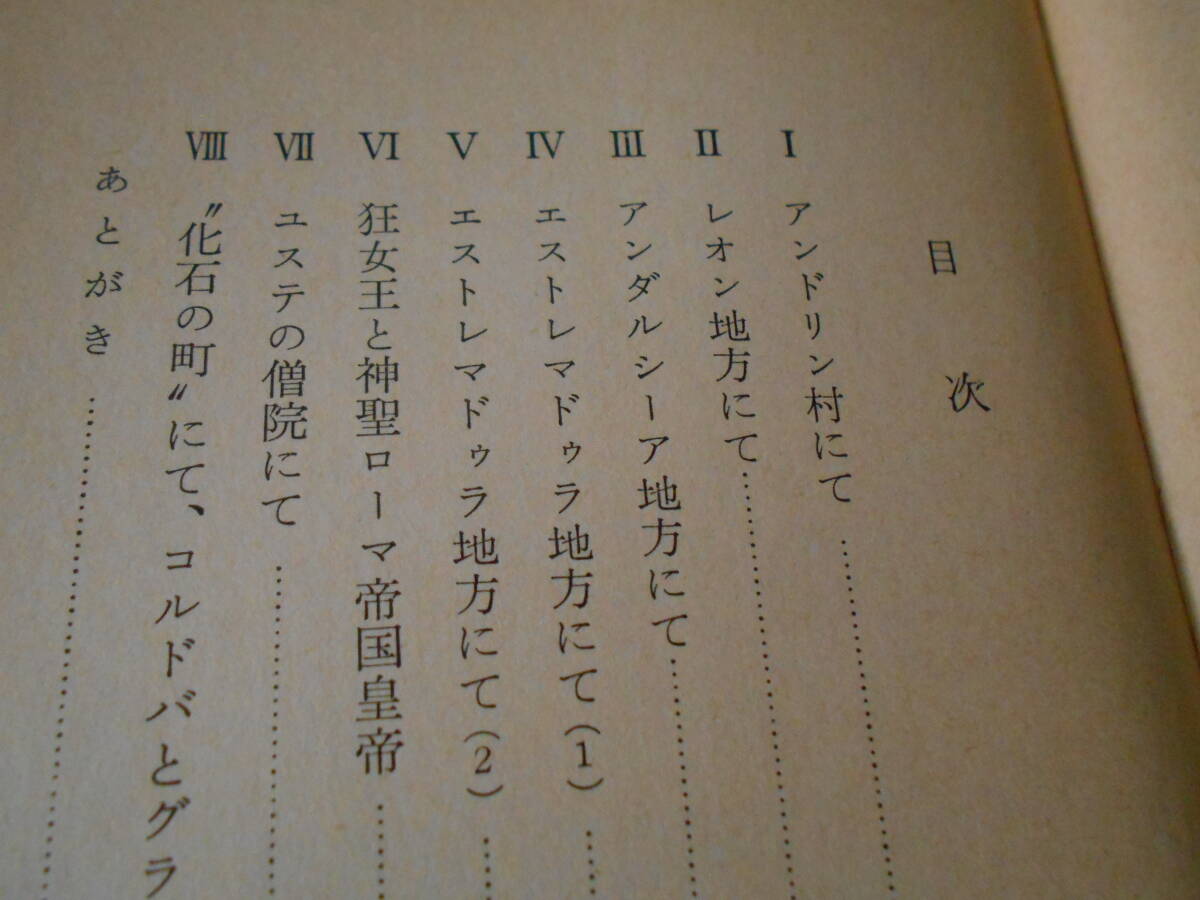 目次
I アンドリン村にて……
II レオン地方にて……
III アンダルシーア地方にて……
IV エストレマドゥラ地方にて(1)……
V エストレマドゥラ地方にて(2)……
VI 狂女王と神聖ローマ帝国皇帝……
VII ユステの僧院にて……
VIII 〝化石の町〟にて、コルドバとグラ
あとがき……